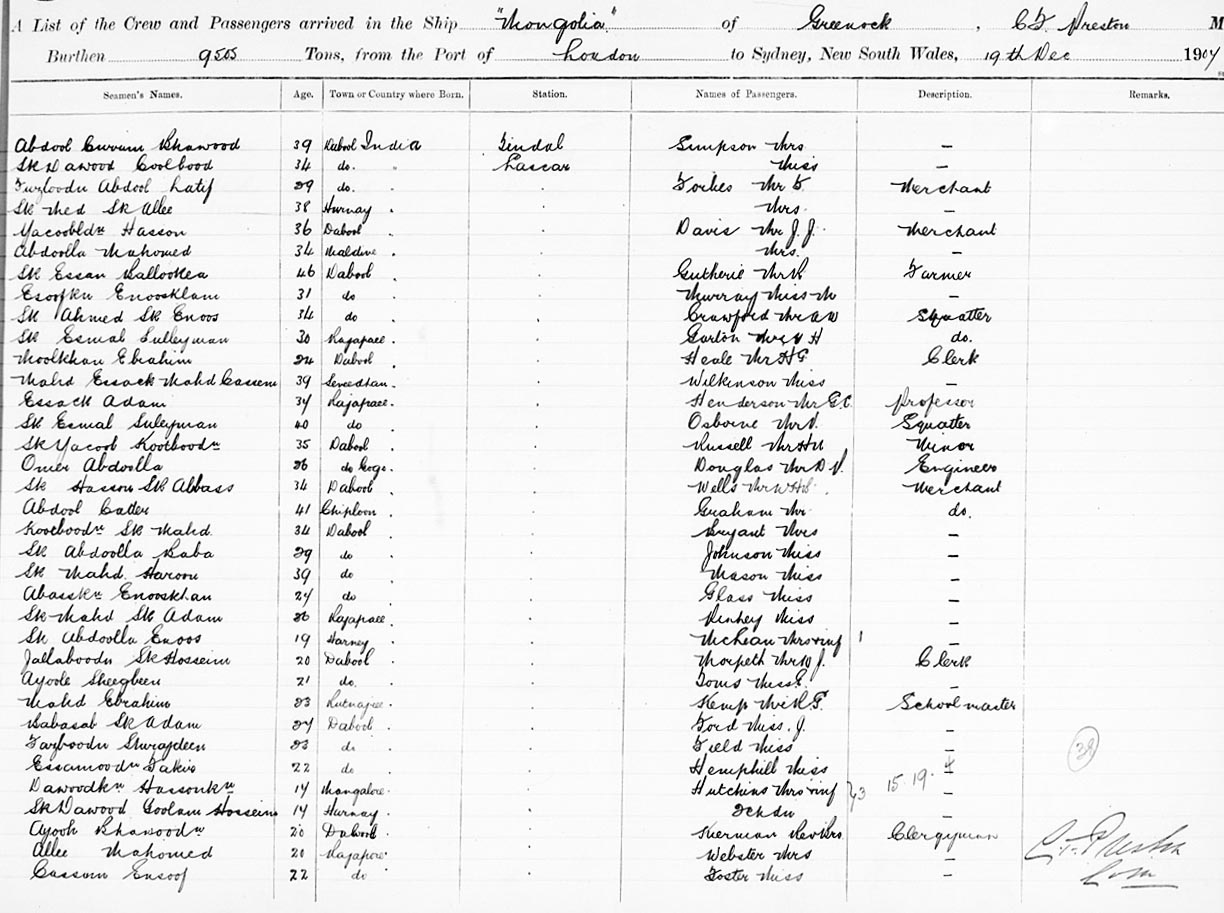 A List of the Crew and Passengers arrived in the Ship "Mongolia" of Greenock, C F Preston M
Burthen 9505 Tons, from the Port of London to Sydney, New South Wales, 19th Dec 1904
Seamen's Names. Age. Town or Country where Born. Station. Names of Passengers. Description. Remarks.
Abdool Curram Bhawood 39 Dabool India Tindal Simpson Mrs —
SK Dawood Coolbood 34 do. " Lascar Miss —
Fuzloodn Abdool Latif 29 do. Forbes Mr F Merchant
SK Med SK Allee 38 Hurnay Mrs. —
Yacoobldn Hasson 36 Dabool Davis Mr J. J. Merchant
Abdoolla Mahomed 34 Maldive Mrs. —
SK Essan Ballookea 46 Dabool Gutherie Mr R Farmer
Esoofkn Enoosklam 31 do Murray Miss M —
SK Ahmed SK Enoos 34 do Crawford Mr A W Squatter
SK Esmal Sulleyman 30 Rajapaee Garton H do.
Moolkhan Ebrahim 24 Dabool Heale Mr H G Clerk
Mahd Essack Mahd Cassem 39 Wilkinson Miss —
Essack Adam 34 Rajapaee. Henderson Mr G.C. Professor
SK Esmal Suleyman 40 do Osborne Mr H. Squatter
SK Yacoob Kootboodn 35 Dabool Russell Mr H M Minor
Omer Abdoolla 26 do Goge. Douglas Mr D V. Engineer
SK Hasson SK Abbass 34 Dabool Wells Mr W H Merchant
Abdool Cader 41 Chiploon Graham Mr do.
Kootboodn SK Mahd. 34 Dabool Bryant Mrs —
SK Abdoolla Baba 29 do Johnson Miss —
SK Mahd. Haroon 39 do Mason Miss —
Abasskn Enooskhan 24 do Glass Miss —
SK Mahd SK Adam 26 Rajapaee Pinhey Miss —
SK Abdoolla Enoos 19 Harney McLean Mrs + inf 1 —
Jallaboodn SK Hosseim 20 Dabool Morpeth Mr W J. Clerk
Ayoole Sheegbeen 21 do. Toms Miss E. —
Mahd Ebrahim 23 Rutnagee Kemp Mr R G. Schoolmaster
Babasab SK Adam 24 Dabool Ford Miss. J. —
Fazboodn Shurajdeen 23 do Field Miss —
Essamoodn Fakir 22 do Hemphill Miss —
Dawoodkn Hassonkn 14 Mangalore Hutchins Mrs + inf 3 15. 19. 4 —
SK Dawood Goolam Hosseim 14 Hurnay 2 Chdn —
Ayoob Bhawoodn 20 Dabool Sherman Rev Mrs Clergyman
Allee Mahomed 20 Rajapore Webster Mrs —
Cassum Ensoof 22 do Foster Miss —
38
C. F. Preston
Com